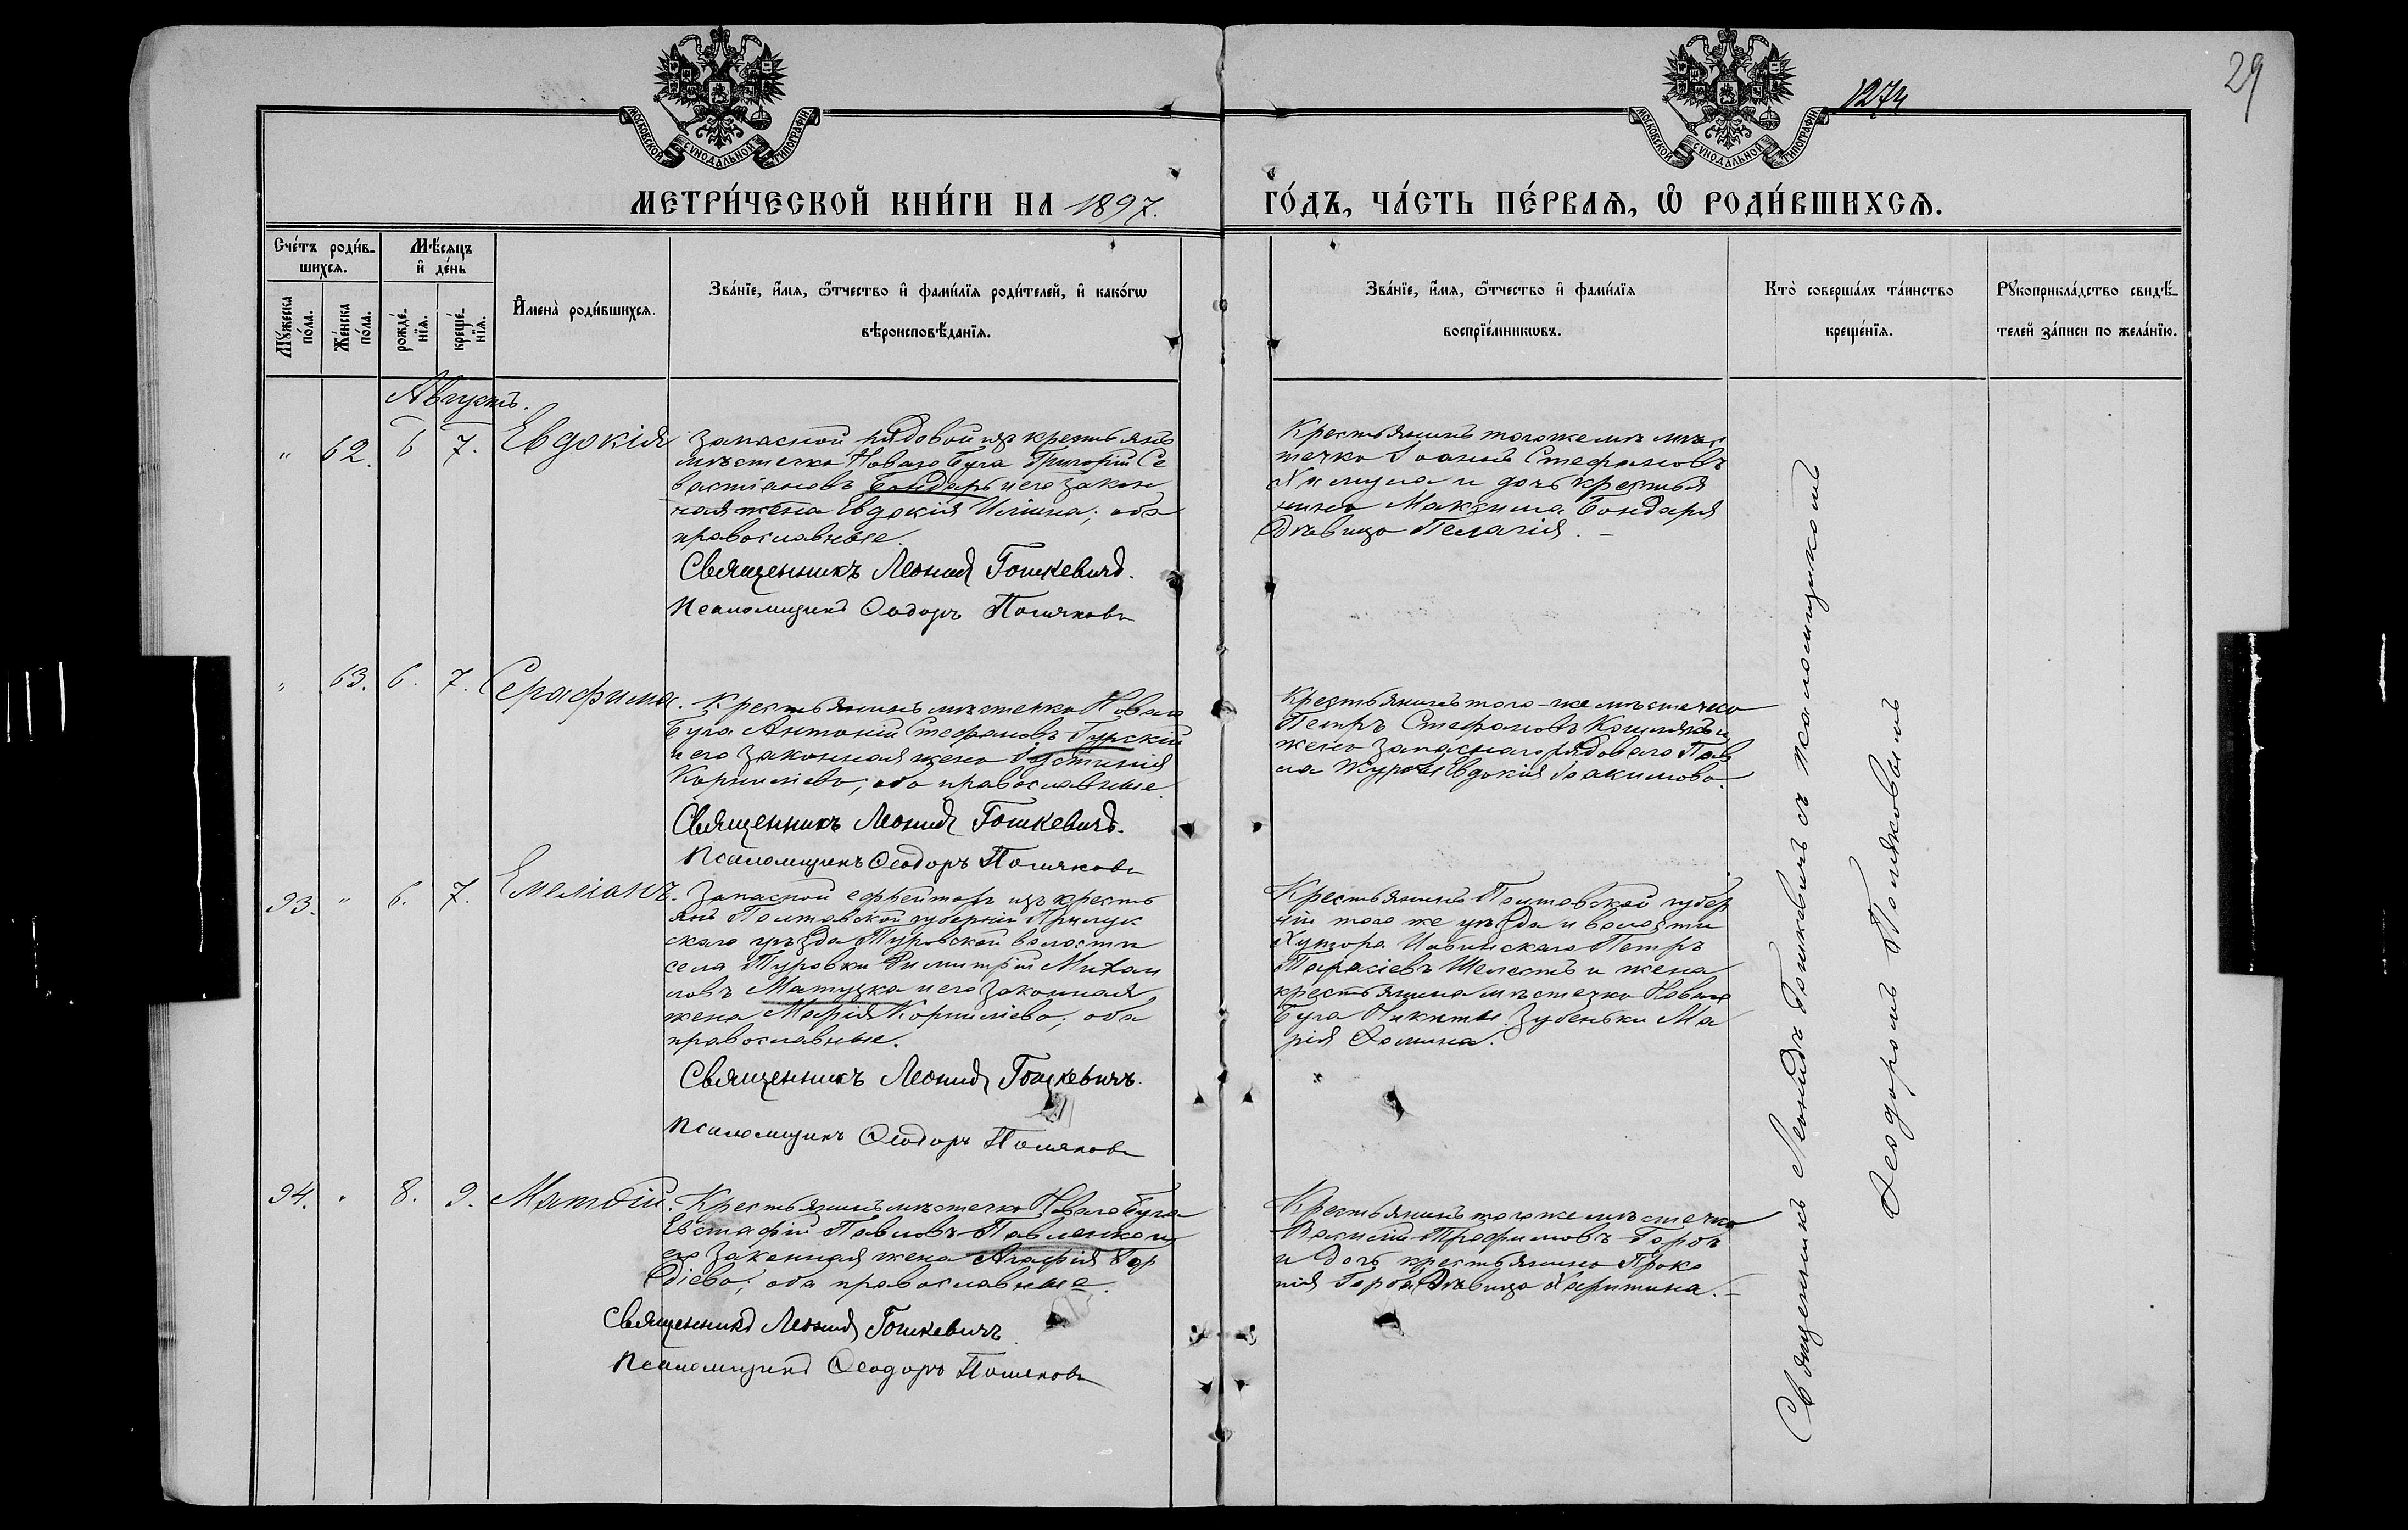 29
1274
МОСКОВСКОЙ СѴНОДАЛЬНОЙ ТИПОГРАФІИ
МОСКОВСКОЙ СѴНОДАЛЬНОЙ ТИПОГРАФІИ
МЕТРИ́ЧЕСКОЙ КНИ́ГИ НА 1897.
ГО́ДЪ, ЧА́СТЬ ПЕ́РВАѦ, Ѡ РОДИ́ВШИХСѦ.
Сче́тъ роди́в-
шихсѧ.
Мꙋ́жеска
по́ла.
Же́нска
по́ла.
Мѣ́сѧцъ
и҆ де́нь
рожде́-
нїѧ.
креще́-
нїѧ.
И҆мена̀ роди́вшихсѧ.
Зва́нїе, и҆́мѧ, ѻ҆́тчество и҆ фами́лїѧ роди́телей, и҆ како́гѡ
вѣроисповѣ́данїѧ.
Зва́нїе, и҆́мѧ, ѻ҆́тчество и҆ фами́лїѧ
воспрїе́мникѡвъ.
Кто̀ соверша́лъ та́инство
креще́нїѧ.
Рꙋкоприкла́дство свидѣ́-
телей за́писи по жела́нїю.
Августъ.
" 62. 6 7. Евдокія
Запасной рядовой изъ крестьянъ
мѣстечка Новаго Буга Григорій Се
вастіановъ Бондарь и его закон
ная жена Евдокія Ильина; оба
православные.
Священникъ Леонидъ Гошкевичъ.
Псаломщикъ Ѳеодоръ Поляковъ
Крестьянинъ того же мѣс
течка Іоаннъ Стефановъ
и дочь крестья
нина Максима Бондаря
дѣвица Пелагія. —
" 63. 6. 7. Серафима.
Крестьянинъ мѣстечка Новаго
Буга Антоній Стефановъ Гурскій
и его законная жена Іустинія
Корниліева; оба православные.
Священникъ Леонидъ Гошкевичъ.
Псаломщикъ Ѳеодоръ Поляковъ
Крестьянинъ того-же мѣстечка
Петръ Стефановъ и
жена запаснаго рядоваго Пав
ла Евдокія Іоакимова.
93. " 6. 7. Емеліанъ.
Запасной ефрейторъ изъ кресть
янъ Полтавской губерніи Прилук
скаго уѣзда Туровской волости
села Туровки Димитрій Михаи
ловъ Мацука и его законная
жена Марія Корниліева; оба
православные.
Священникъ Леонидъ Гошкевичъ.
Псаломщикъ Ѳеодоръ Поляковъ
Крестьянинъ Полтавской губер
ніи того же уѣзда и волости
Хутора Петръ
Тарасіевъ Шелестъ и жена
крестьянина мѣстечка Новаго
Буга Никиты Зубенки Ма
рія Ѳомина.
94. " 8. 9. Матѳій.
Крестьянинъ мѣстечка Новаго Буга
Евстафій Павловъ Павленко и
его законная жена Агафія Гор
діева; оба православные.
Священникъ Леонидъ Гошкевичъ
Псаломщикъ Ѳеодоръ Поляковъ
Крестьянинъ того же мѣстечка
Василій Трофимовъ
и дочь крестьянина Проко
пія дѣвица Харитина. —
Священникъ Леонидъ Гошкевичъ съ псаломщикомъ
Ѳеодоромъ Поляковымъ